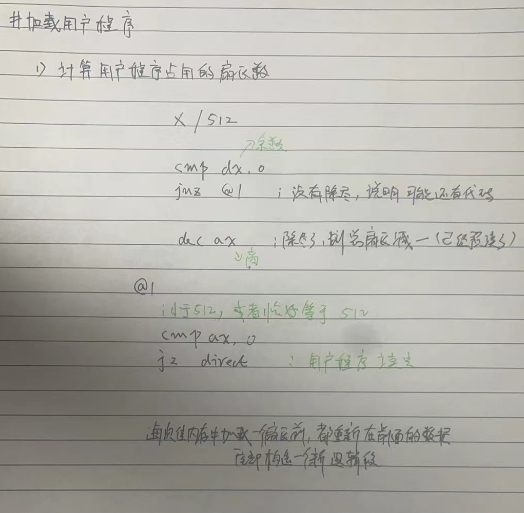 #加载用户程序
1) 计算用户程序占用的扇区数
X / 512
余数
cmp dx, 0
jnz @1 ; 没有除尽, 说明可能还有代码
dec ax ; 除尽了, 则总扇区减一 (已经预读了)
商
@1
; 小于512, 或者恰好等于 512
cmp ax, 0
jz direct ; 用户程序
每次往内存中加载一个扇区前, 都重新在前面的数据
尾部构造一个新逻辑段